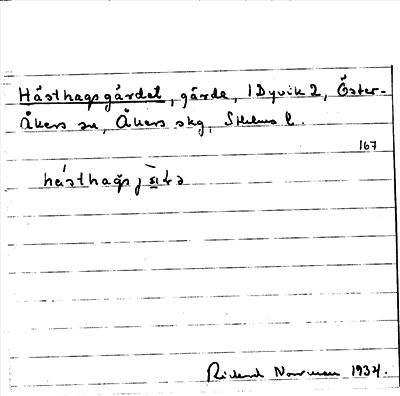 Hästhagsgärdet, gärde, i Dyvik 2, Öster-
Åkers sn, Åkers skg, Sthlms l.
167
Rickard Norrman 1934.